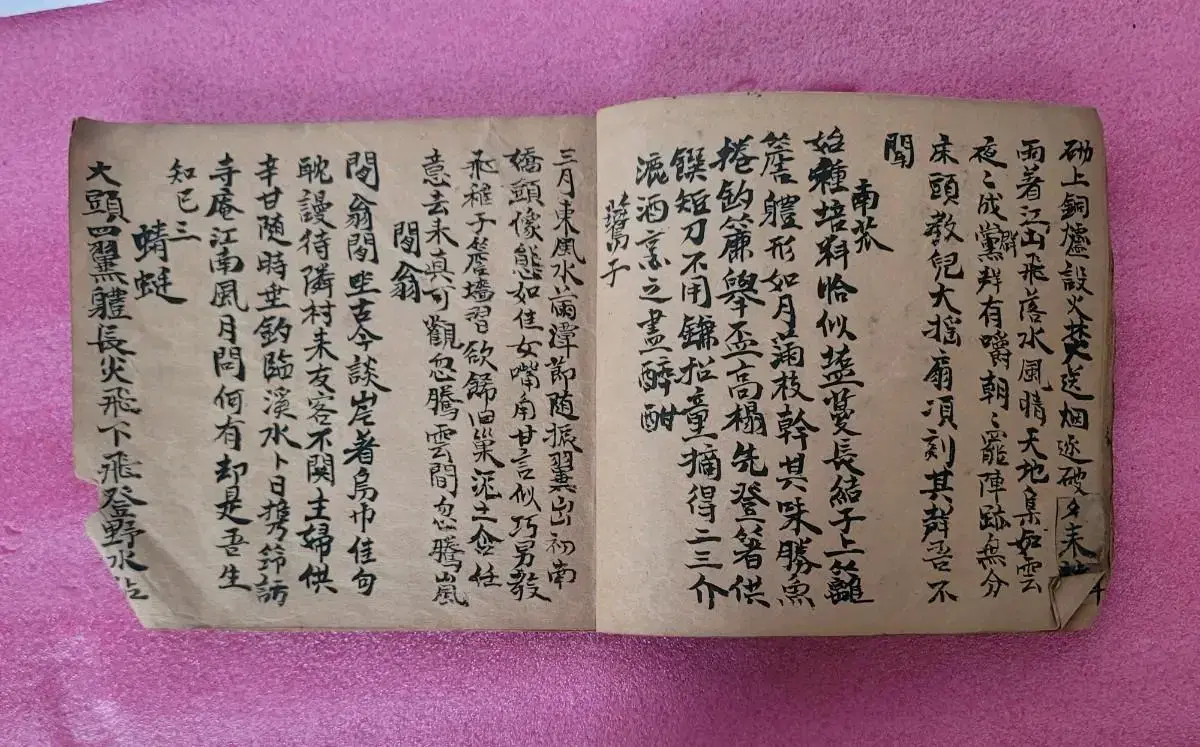 砌上銅爐設火焚送烟逐破夕未
雨著江山飛落水風晴天地集如雲
夜〻成黨群有嚼朝〻罷陣跡無分
群
床頭教兒大摇扇項刻其群吾不
聞
南苽
始種培料恰似壺蔓長結子上籬
簷體形如月滿枝幹其味勝魚
捲釣簾舉盃高榻先登箸供
饌短刀不用鎌招童摘得二三介
漉酒烹之盡醉酣
鷰子
三月東風水滿潭節随振翼出初南
嬌頭像態如佳女嘴角甘言似巧男教
飛稚子簷墻習欲歸旧巢泥土含任
意去来真可觀忽騰雲間忽騰嵐
閒翁
閒翁閒坐古今談岸著烏巾佳句
耽謾待隣村来友客不関主婦供
辛甘随時垂釣臨溪水卜日携筇訪
寺庵江南風月問何有却是吾生
知已三
蜻蜓
大頭四翼體長尖飛下飛登野水